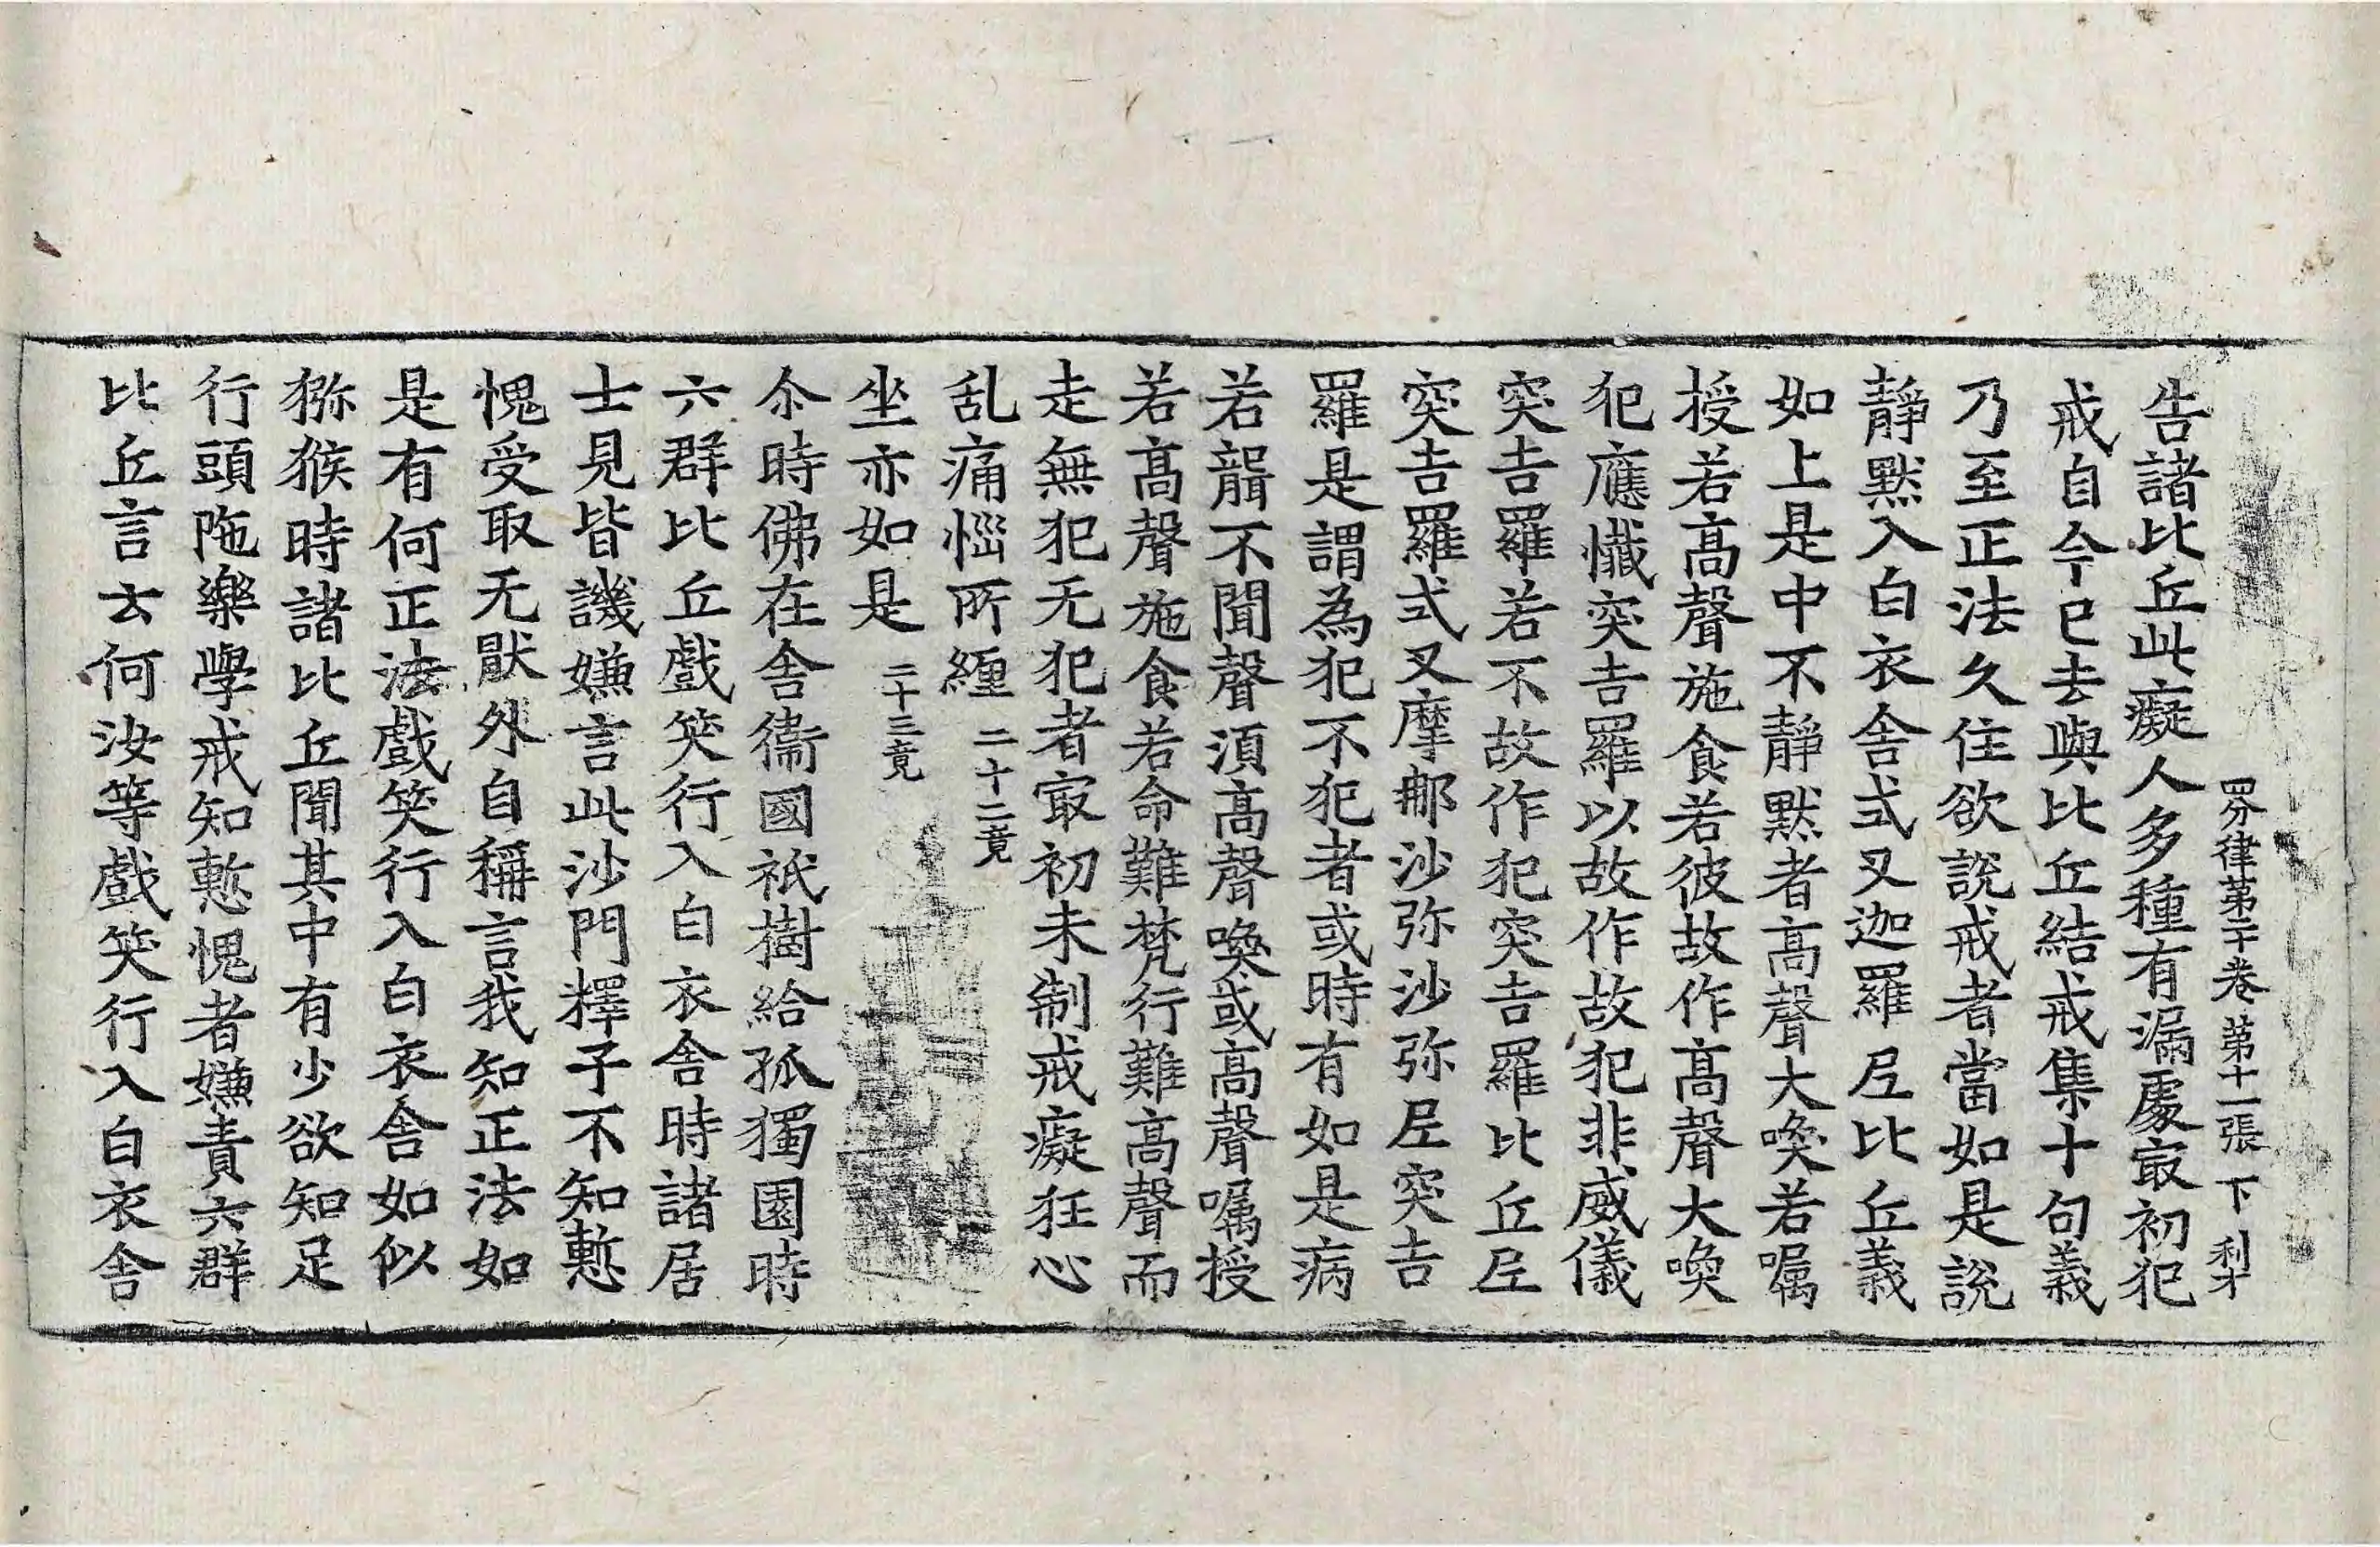 四分律第二十卷　第十一張　下　利才
告諸比丘此癡人多種有漏處㝡初犯
戒自今已去與比丘結戒集十句義
乃至正法久住欲說戒者當如是說
靜默入白衣舍式叉迦羅尼比丘義
如上是中不靜默者高聲大喚若囑
授若高聲施食若彼故作高聲大喚
犯應懺突吉羅以故作故犯非威儀
突吉羅若不故作犯突吉羅比丘尼
突吉羅式叉摩那沙弥沙弥尼突吉
羅是謂為犯不犯者或時有如是病
若聾不聞聲須高聲喚或高聲囑授
若高聲施食若命難梵行難高聲而
走無犯无犯者㝡初未制戒癡狂心
乱痛惱所纏二十二竟
坐亦如是二十三竟
尒時佛在舍衛國祇樹給孤獨園時
六群比丘戲笑行入白衣舍時諸居
士見皆譏嫌言此沙門釋子不知慙
愧受取无猒外自稱言我知正法如
是有何正法戲笑行入白衣舍如似
猕猴時諸比丘聞其中有少欲知足
行頭陁樂學戒知慙愧者嫌責六群
比丘言云何汝等戲笑行入白衣舍